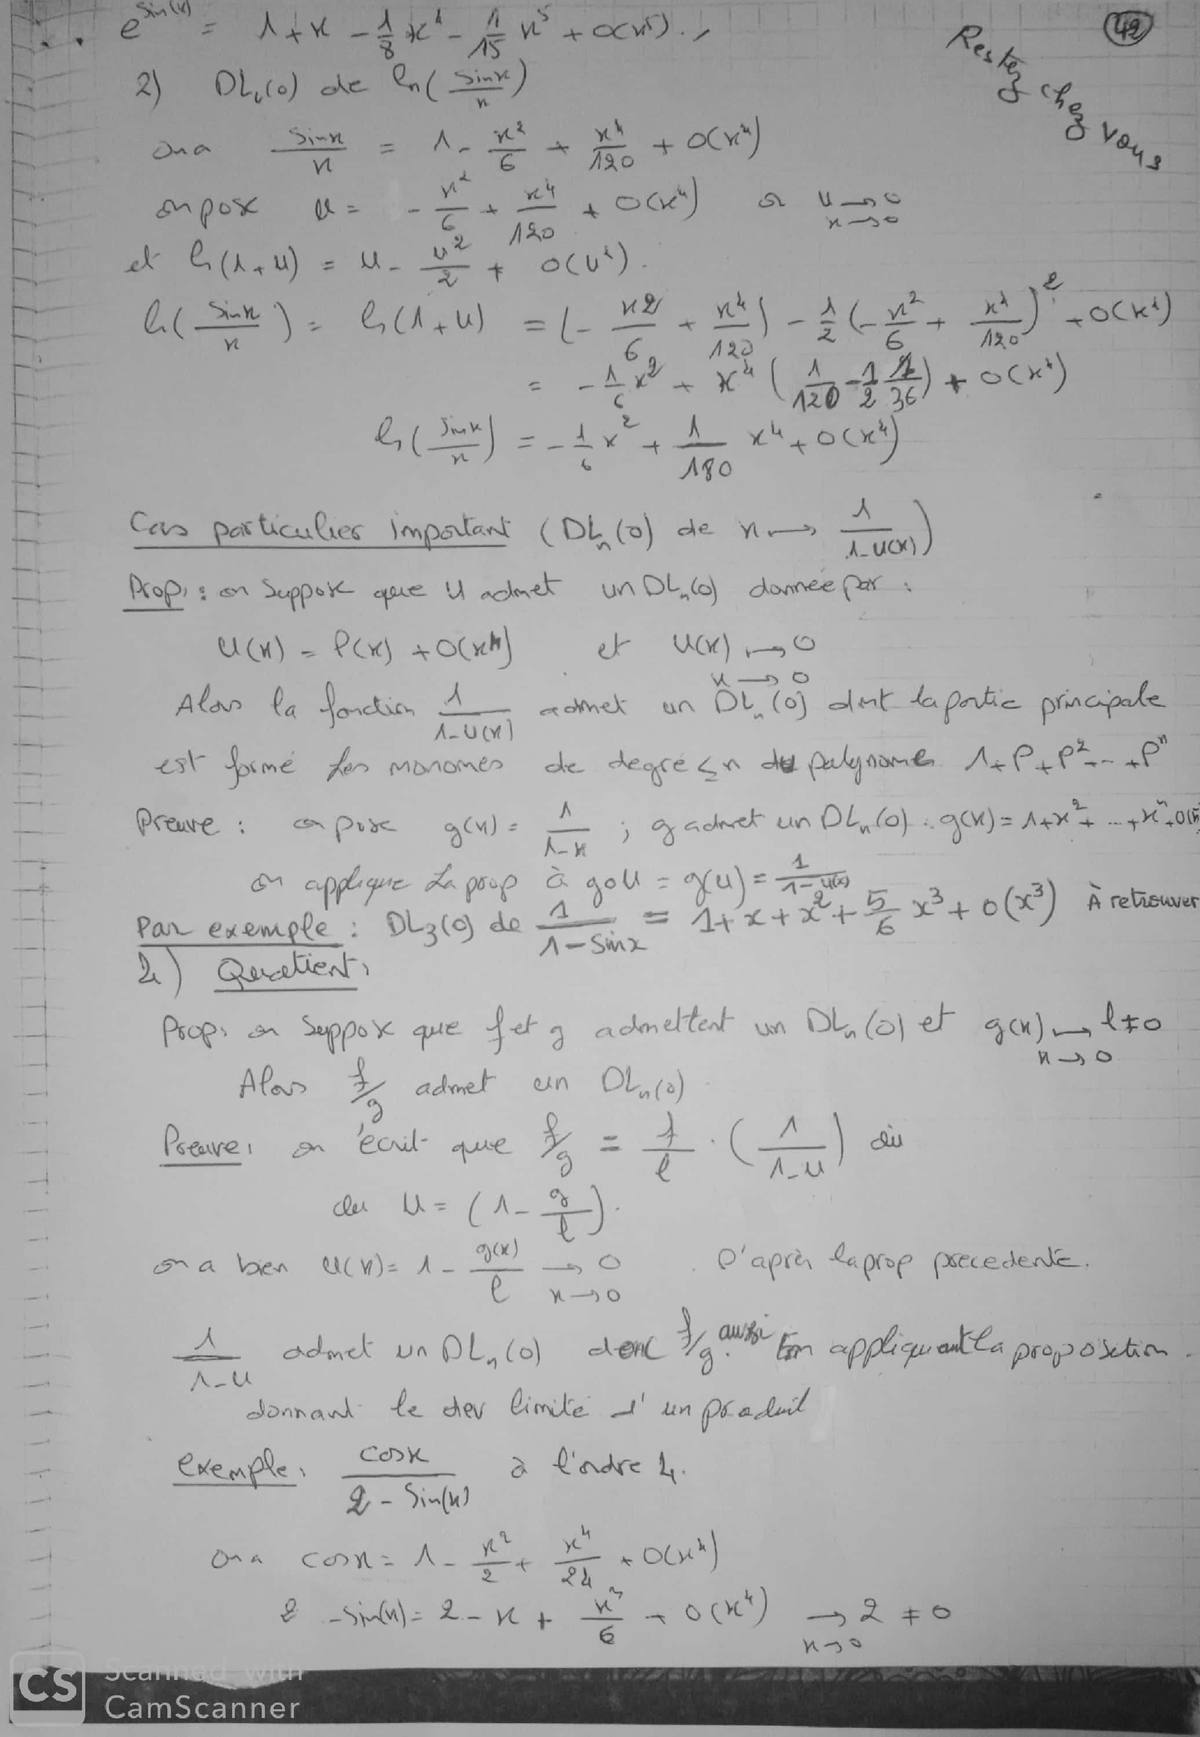 e^sin(x) = 1 + x - 1/8 x⁴ - 1/15 x⁵ + o(x⁵).
42
Restez chez vous
2) DL₄(0) de ln(sinx/x)
on a sinx/x = 1 - x²/6 + x⁴/120 + o(x⁴)
on pose u = - x²/6 + x⁴/120 + o(x⁴) u → 0 x → 0
et ln(1+u) = u - u²/2 + o(u²).
ln(sinx/x) = ln(1+u) = (- x²/6 + x⁴/120) - 1/2 (- x²/6 + x⁴/120)² + o(x⁴)
= - 1/6 x² + x⁴ (1/120 - 1/2 1/36) + o(x⁴)
ln(sinx/x) = - 1/6 x² + 1/180 x⁴ + o(x⁴)
Cas particulier important (DLₙ(0) de x ↦ 1/(1-u(x)))
Prop : on suppose que u admet un DLₙ(0) donnée par :
u(x) = P(x) + o(xⁿ) et u(x) ↦ 0 x → 0
Alors la fonction 1/(1-u(x)) admet un DLₙ(0) dont la partie principale
est formé des monomes de degré ≤ n du polynome 1+P+P²+--+Pⁿ
Preuve : on pose g(x) = 1/(1-x) ; g admet un DLₙ(0) : g(x) = 1+x²+...+xⁿ+o(xⁿ)
on applique la prop à gou = g(u) = 1/(1-u(x))
Par exemple : DL₃(0) de 1/(1-sinx) = 1+x+x²+5/6 x³+o(x³) À retrouver
4) Quotient:
Prop: on suppose que f et g admettent un DLₙ(0) et g(x) ↦ l≠0 x → 0
Alors f/g admet un DLₙ(0)
Preuve: on écrit que f/g = f/l . (1/(1-u)) où
où u = (1 - g/l).
on a bien u(x) = 1 - g(x)/l → 0 x → 0 . D'après la prop precedente.
1/(1-u) admet un DLₙ(0) donc f/g aussi en appliquant la proposition.
donnant le dev limité d'un produit
exemple: cosx/(2 - sin(x)) à l'ordre 4.
on a cosx = 1 - x²/2 + x⁴/24 + o(x⁴)
2 - sin(x) = 2 - x + x³/6 + o(x⁴) → 2 ≠ 0 x → 0
CS
Scanned with
CamScanner